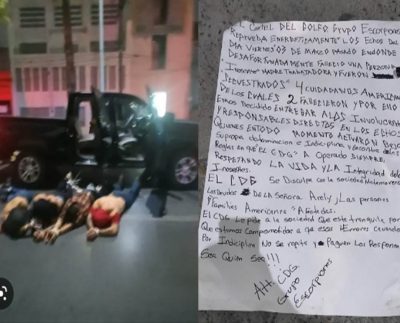 El Cartel DEL GOLFO GRUPO Escorpiones
Reprueba ENERGETICAMENTE LOS Echos DEL
DIA VIERNES 03 DE MARZO ENDONDE
DESAFORTUNADAMENTE FALLECIO UNA PERSONA
Inocente MADRE TRABAJADORA Y FUERON
SECUESTRADOS 4 CIUDADANOS AMERICANOS
DE LOS CUALES 2 FALLECIERON Y POR ENDE
Emos Decidido ENTREGAR A LOS INVOLUCRADOS
Y RESPONSABLES DIRECTOS EN LOS ECHOS
Quienes EN TODO MOMENTO ACTUARON BAJO
determinacion e Indisciplina y
Reglas en QUE EL CDG A Operado SIEMPRE
RESPETANDO LA VIDA Y LA Integridad de los
Inocentes.
EL CDG Se Disculpa con LA sociedad de Matamoros
DE LA Señora Arely y Las personas
y Familias Americanas Afectadas.
El CDG Le pide a LA sociedad QUE este tranquila
Que estamos Comprometidos a que esos Herrores
Por Indiciplina No se repita y Paguen Los Responsables
Sea Quien Sea!!!
Att. CDG
Grupo
Escorpiones